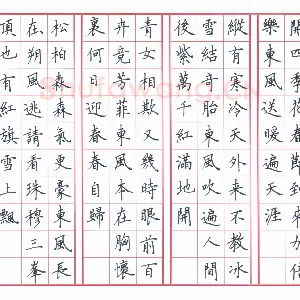 樂東風送暖遍天涯
縱有寒冷天外來不教冰
雪結奇胎東風吹遍人間
後紫萬千紅滿地開
青女相欺又幾時眼前百
卉竟芳菲東風本在胸懷
裏何日迎春春自歸
松柏森森氣更豪東風長
在朔風逃請看珠穆三峯
頂也有紅旗雪上飄